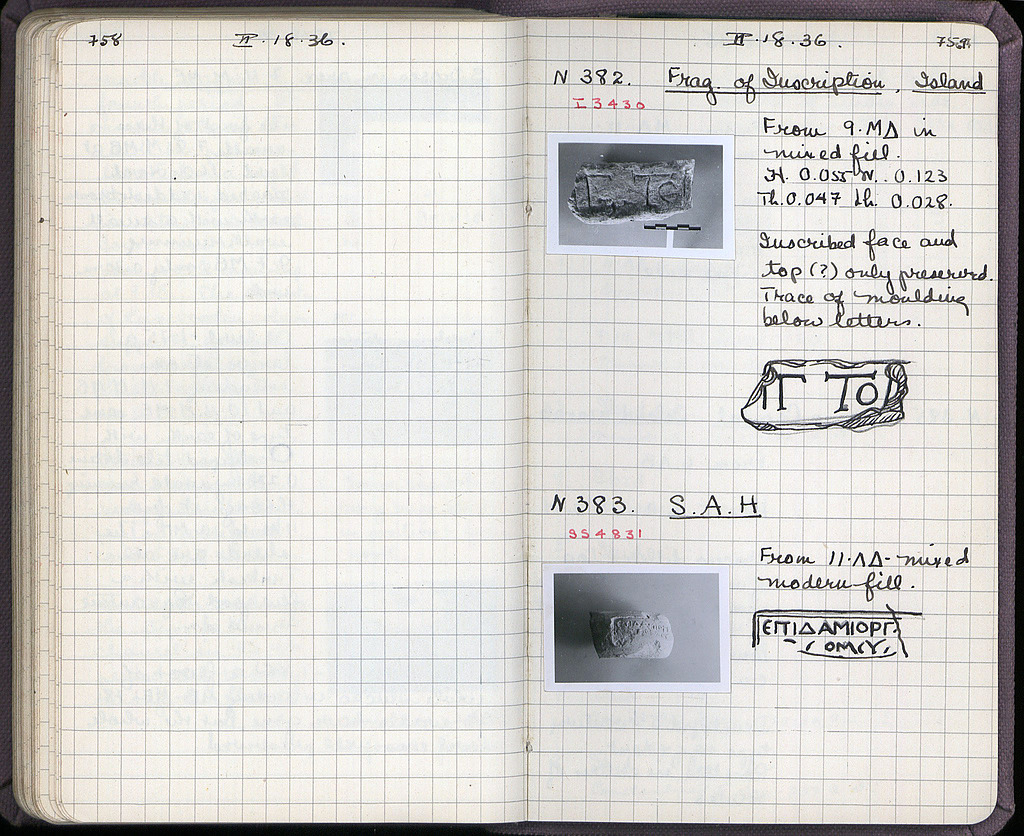 758
II · 18 · 36 .
II · 18 · 36 .
759
N 382. Frag. of Inscription, Island
I 3430
From 9·ΜΔ in
mixed fill.
H. 0.055 W. 0.123
Th. 0.047 Lh. 0.028.
Inscribed face and
top (?) only preserved.
Trace of moulding
below letters.
Γ ΤΟ
N 383. S.A.H
SS4831
From 11·ΛΔ - mixed
modern fill.
ΕΠΙΔΑΜΙΟΡΓ